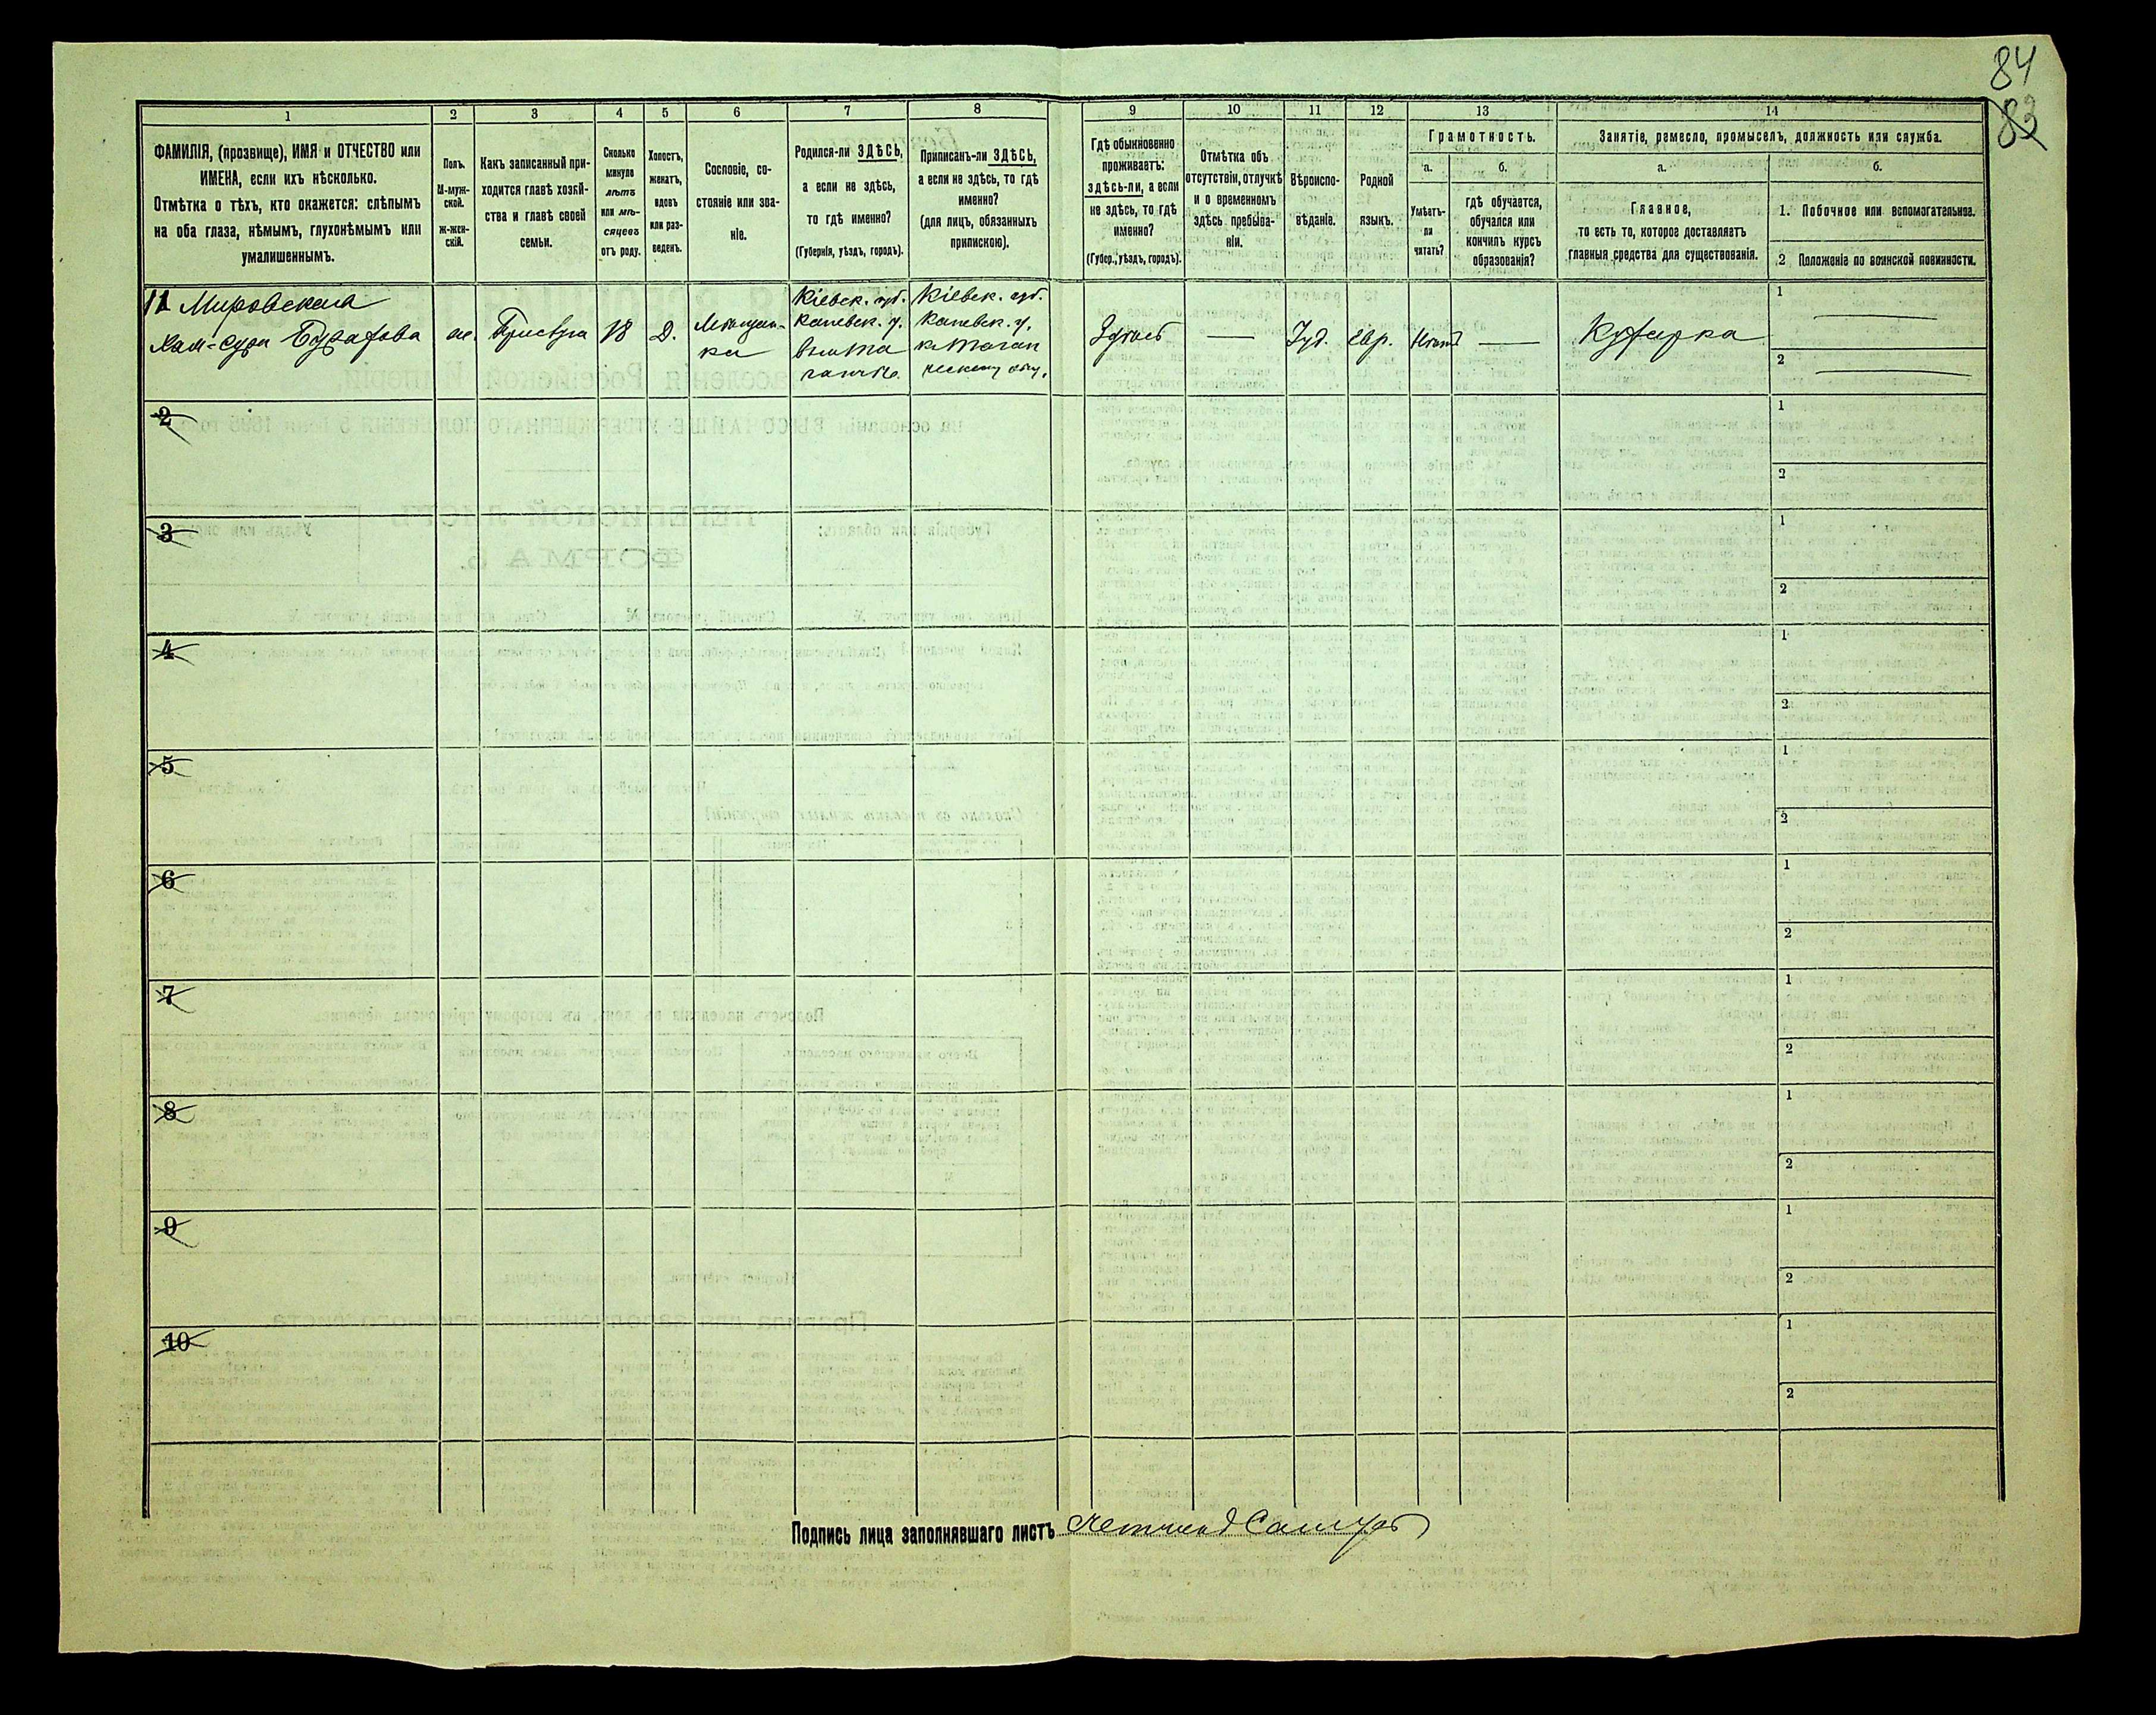 84
83
1
2
3
4
5
6
7
8
9
10
11
12
13
14
ФАМИЛІЯ, (прозвище), ИМЯ и ОТЧЕСТВО или
ИМЕНА, если ихъ нѣсколько.
Отмѣтка о тѣхъ, кто окажется: слѣпымъ
на оба глаза, нѣмымъ, глухонѣмымъ или
умалишеннымъ.
Полъ.
М-муж-
ской.
Ж-жен-
скій.
Какъ записанный при-
ходится главѣ хозяй-
ства и главѣ своей
семьи.
Сколько
минуло
лѣтъ
или мѣ-
сяцевъ
отъ роду.
Холостъ,
женатъ,
вдовъ
или раз-
веденъ.
Сословіе, со-
стояніе или зва-
ніе.
Родился-ли ЗДѢСЬ,
а если не здѣсь,
то гдѣ именно?
(Губернія, уѣздъ, городъ).
Приписанъ-ли ЗДѢСЬ,
а если не здѣсь, то гдѣ
именно?
(для лицъ, обязанныхъ
припискою).
Гдѣ обыкновенно
проживаетъ:
здѣсь-ли, а если
не здѣсь, то гдѣ
именно?
(Губер., уѣздъ, городъ).
Отмѣтка объ
отсутствіи, отлучкѣ
и о временномъ
здѣсь пребыва-
ніи.
Вѣроиспо-
вѣданіе.
Родной
языкъ.
Грамотность.
а.
Умѣетъ-
ли
читать?
б.
гдѣ обучается,
обучался или
кончилъ курсъ
образованія?
Занятіе, ремесло, промыселъ, должность или служба.
а.
Главное,
то есть то, которое доставляетъ
главныя средства для существованія.
б.
1. Побочное или вспомогательное.
2 Положеніе по воинской повинности.
11 Мировская
ж.
Прислуга
18
Д.
Мѣщан-
ка
Кіевск. губ.
Каневск. у.
Кіевск. губ.
Каневск. у.
Здѣсь
—
Іуд.
Евр.
Нѣтъ
—
Кухарка
1
2
2
1
2
3
1
2
4
1
2
5
1
2
6
1
2
7
1
2
8
1
2
9
1
2
10
1
2
Подпись лица заполнявшаго листъ